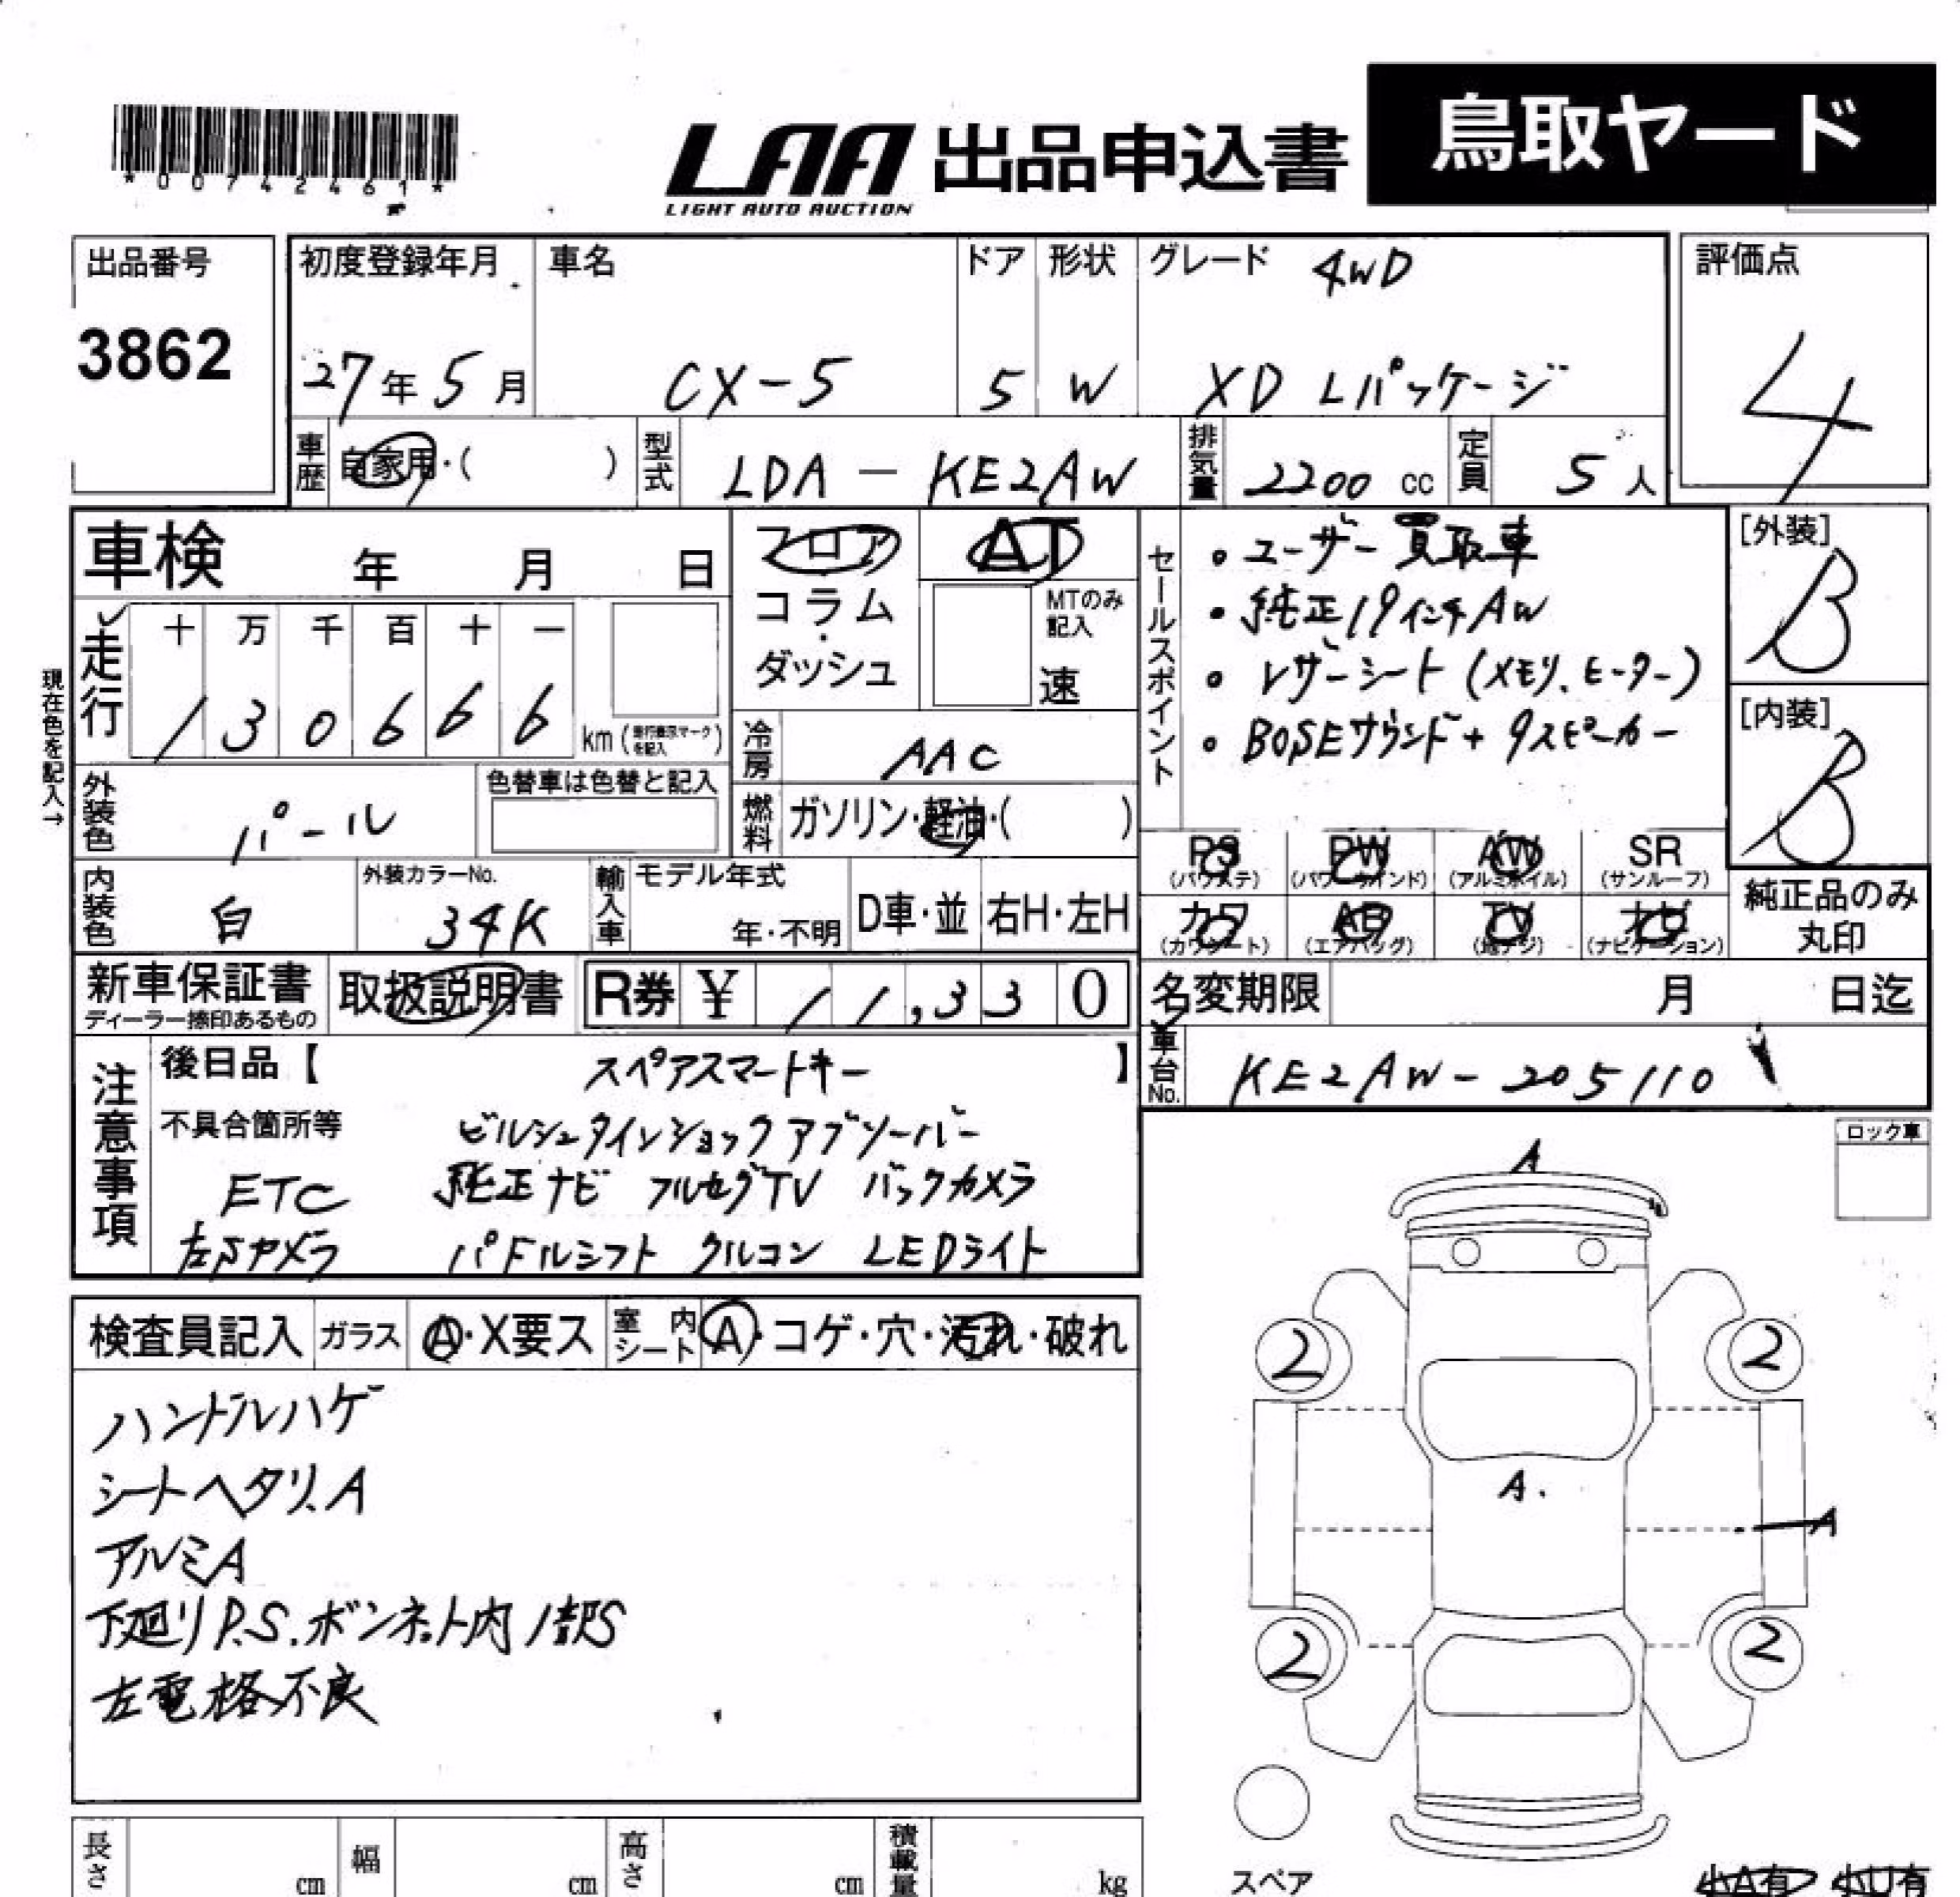 *00742461*
LAA 出品申込書 鳥取ヤード
LIGHT AUTO AUCTION
出品番号
3862
初度登録年月 車名 ドア 形状 グレード 4WD
27年5月 CX-5 5 W XD Lパッケージ
評価点
4
車歴 自家用・( ) 型式 LDA-KE2AW 排気量 2200 cc 定員 5人
車検 年 月 日
フロア
コラム
・
ダッシュ
AT
MTのみ
記入
速
セールスポイント
・ユーザー買取車
・純正19インチAW
・レザーシート(メモリ、ヒーター)
・BOSEサウンド+9スピーカー
[外装]
B
[内装]
B
現在色を記入→
走行
十 万 千 百 十 一
1 3 0 6 6 6 km (走行表示マークを記入)
冷房 AAC
燃料 ガソリン・軽油・( )
外装色 パール 色替車は色替と記入
内装色 白 外装カラーNo. 34K 輸入車 モデル年式 年・不明 D車・並 右H・左H
PS PW AW SR
(パワステ) (パワーウインド) (アルミホイル) (サンルーフ)
カワ AB TV ナビ
(カワシート) (エアバッグ) (地デジ) (ナビゲーション)
純正品のみ
丸印
新車保証書 取扱説明書 R券 ¥ 11,330
ディーラー捺印あるもの
名変期限 月 日迄
車台No. KE2AW-205110
注意事項
後日品【 スペアスマートキー 】
不具合箇所等 ビルシュタインショックアブソーバー
ETC 純正ナビ フルセグTV バックカメラ
左Sカメラ パドルシフト クルコン LEDライト
ロック車
検査員記入 ガラス A・X要ス 室内シート A・コゲ・穴・汚れ・破れ
ハンドルハゲ
シートヘタリ、A
アルミA
下廻りP.S.ボンネット内1部S
左電格不良
A
2 2
A.
A
2 2
スペア
小A有 小U有
長さ cm 幅 cm 高さ cm 積載量 kg